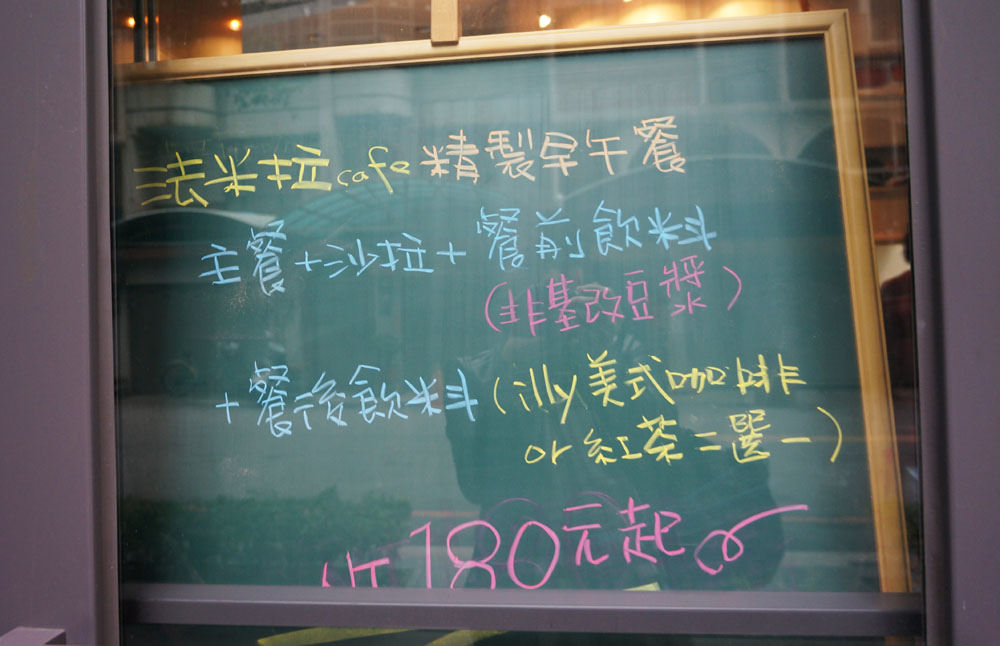 法米拉cafe精製早午餐
主餐+沙拉+餐前飲料
(非基改豆漿)
+餐後飲料(illy美式咖啡
or紅茶二選一)
180元起